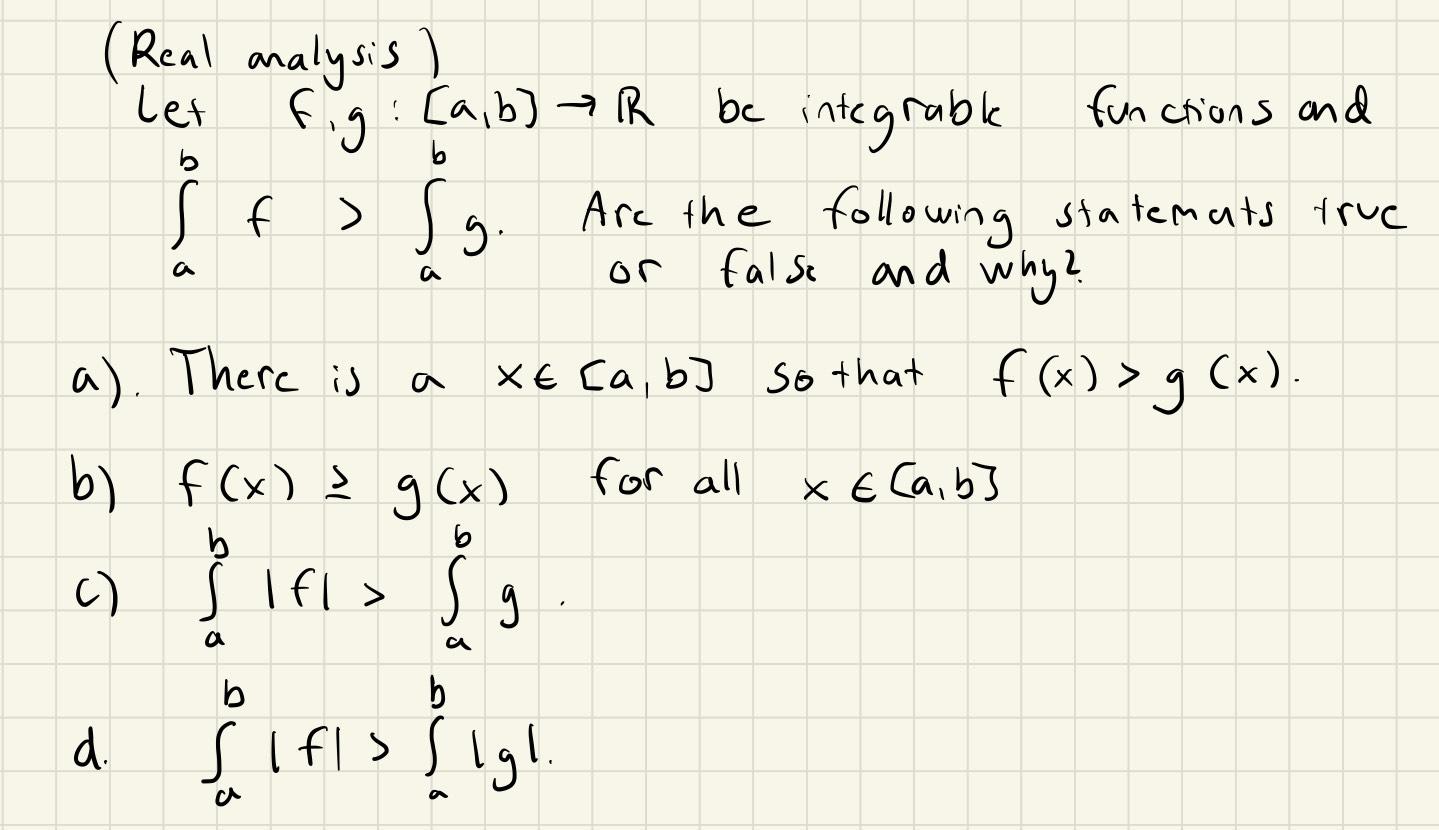 (Real analysis)
Let f,g : [a,b] → ℝ be integrable functions and
∫_a^b f > ∫_a^b g. Are the following statements true
or false and why?
a). There is a x ∈ [a,b] so that f(x) > g(x).
b) f(x) ≥ g(x) for all x ∈ [a,b]
c) ∫_a^b |f| > ∫_a^b g.
d. ∫_a^b |f| > ∫_a^b |g|.